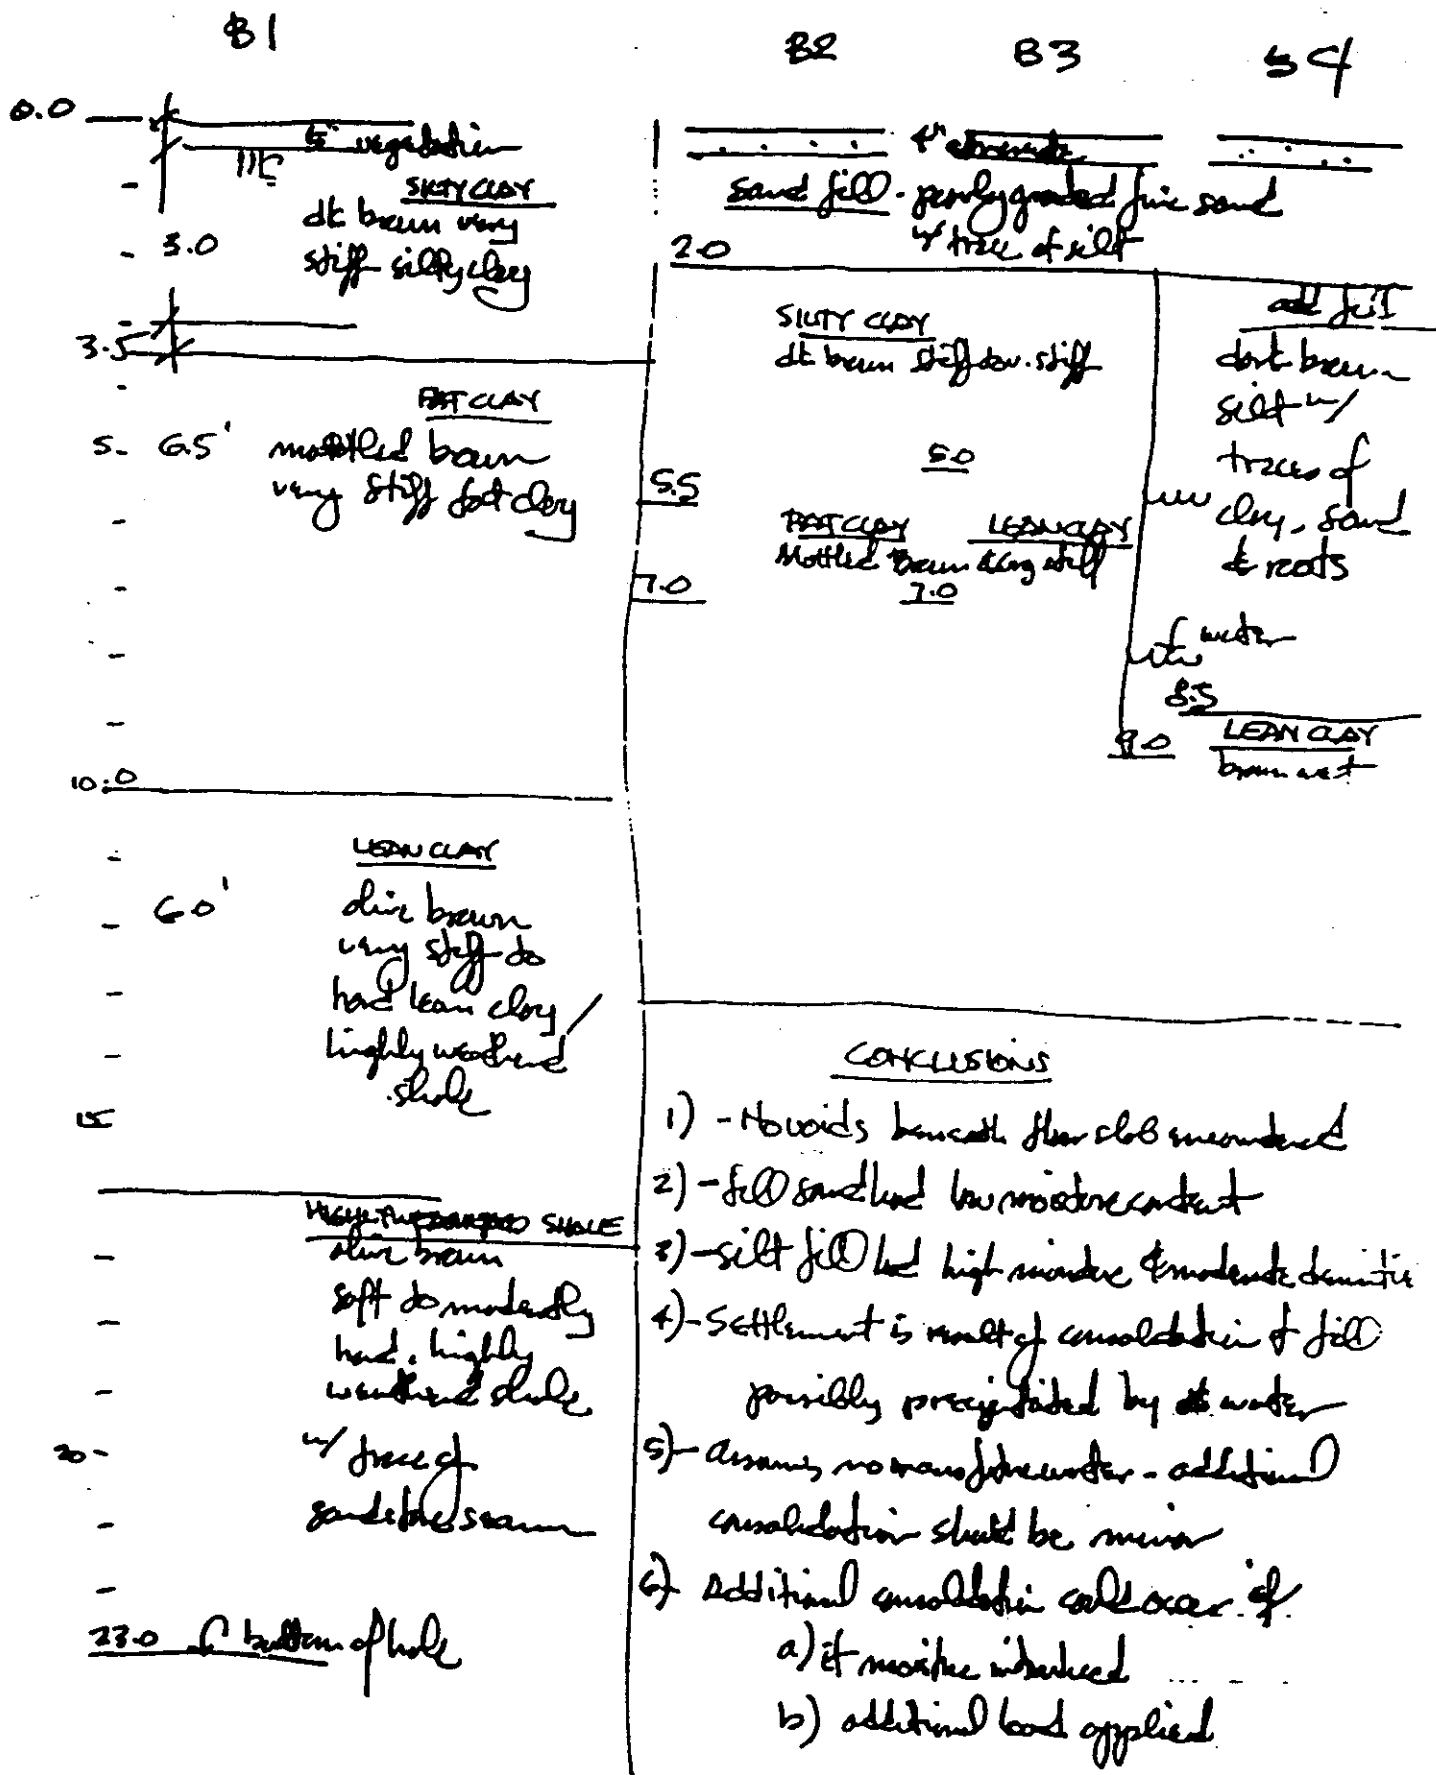 B1
B2 B3 B4
0.0
6" vegetation
SILTY CLAY
dk brown very
stiff silty clay
3.0
3.5
FAT CLAY
5- 6.5' mottled brown
very stiff fat clay
10.0
LEAN CLAY
6.0' olive brown
very stiff to
hard lean clay/
highly weathered
shale
15
HIGHLY WEATHERED SHALE
olive brown
soft to moderately
hard, highly
weathered shale
20- w/ trace of
sandstone seams
23.0 bottom of hole
4" concrete
sand fill - poorly graded fine sand
w/ trace of silt
2.0
SILTY CLAY
dk brown stiff to v. stiff
5.0
5.5
FAT CLAY LEAN CLAY
Mottled Brown very stiff
7.0 7.0
old fill
dark brown
silt w/
traces of
clay, sand
& roots
water
8.5
9.0 LEAN CLAY
brown wet
CONCLUSIONS
1) - No voids beneath floor slab encountered
2) - fill sand had low moisture content
3) - silt fill had high moisture & moderate densities
4) - Settlement is result of consolidation of fill
possibly precipitated by water
5) - Assumes no more future water - additional
consolidation should be minor
6) Additional consolidation could occur if
a) if moisture introduced
b) additional load applied